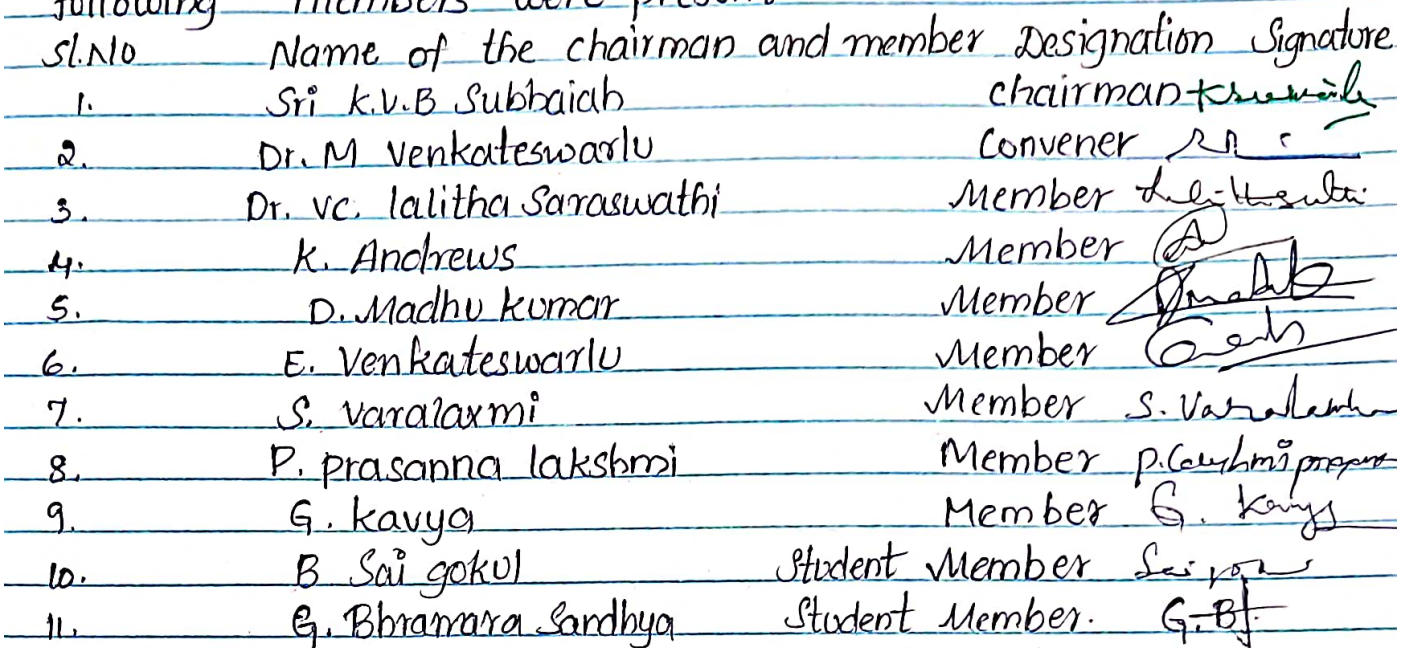 following members were present
Sl.No Name of the chairman and member Designation Signature
1. Sri K.V.B Subbaiah chairman
2. Dr. M Venkateswarlu Convener
3. Dr. VC. lalitha Saraswathi Member
4. K. Andrews Member
5. D. Madhu kumar Member
6. E. Venkateswarlu Member
7. S. varalaxmi Member S. Varalaxmi
8. P. prasanna lakshmi Member
9. G. kavya Member G. Kavya
10. B Sai gokul Student Member
11. G. Bhramara Sandhya Student Member.